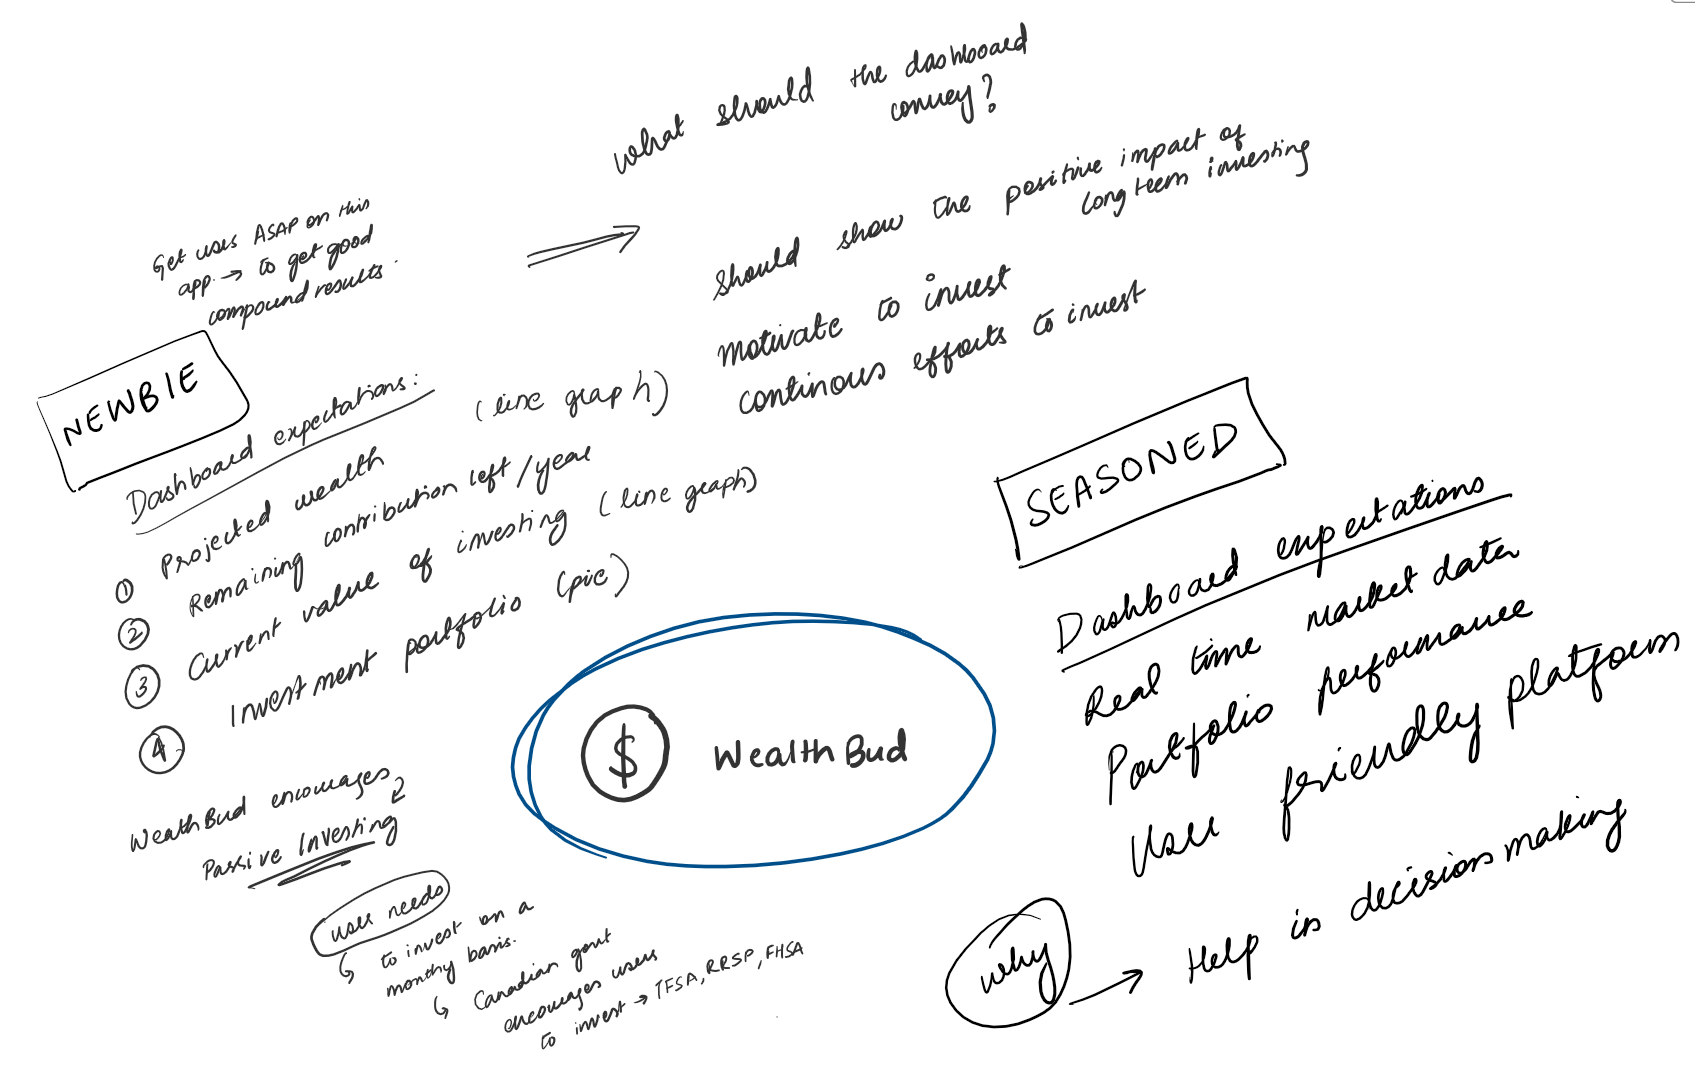 What should the dashboard
convey?
Get users ASAP on this
app. → to get good
compound results.
⇒
Should show the positive impact of
long term investing
Motivate to invest
continous efforts to invest
NEWBIE
Dashboard expectations:
① Projected wealth (line graph)
② Remaining contribution left/year
③ Current value of investing (line graph)
④ Investment portfolio (pie)
WealthBud encourages
Passive Investing
user needs
↳ to invest on a
monthy basis.
↳ Canadian govt
encourages users
to invest → TFSA, RRSP, FHSA
$ WealthBud
SEASONED
Dashboard expectations
Real time market data
Portfolio performance
User friendly platform
why → Help in decision making